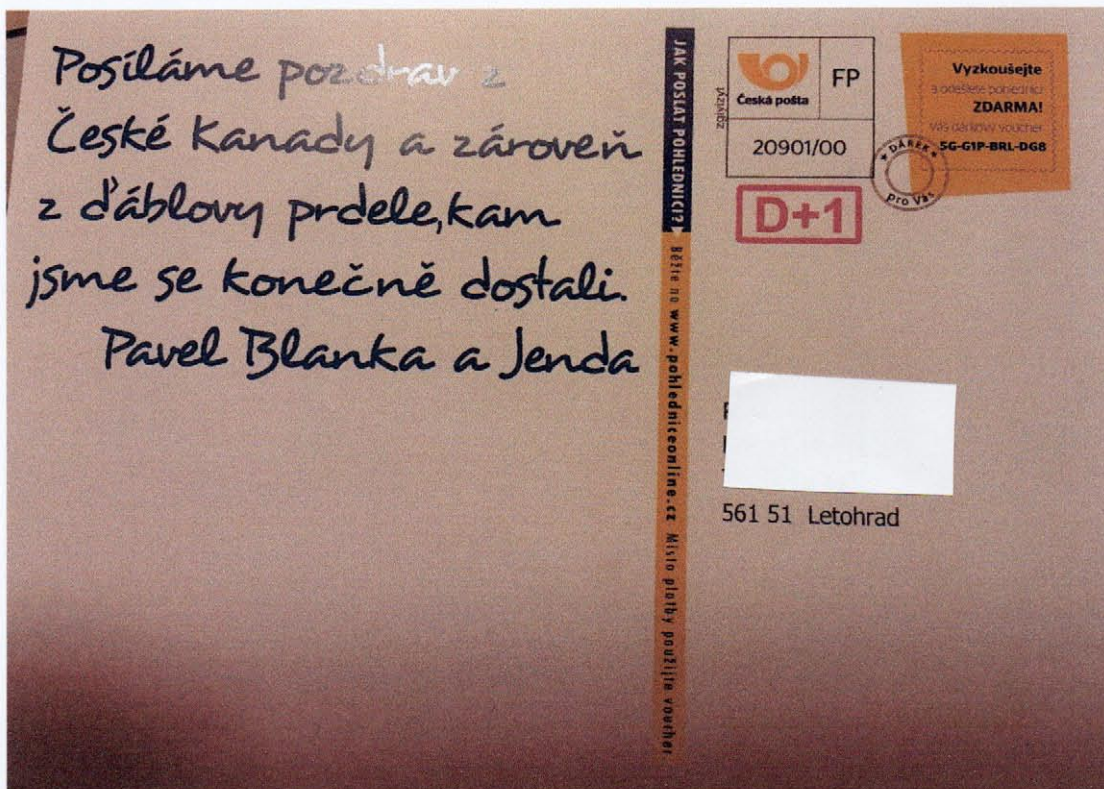 Posíláme pozdrav z
České Kanady a zároveň
z ďáblovy prdele,kam
jsme se konečně dostali.
Pavel Blanka a Jenda
JAK POSLAT POHLEDNICI? Běžte na www.pohledniceonline.cz Místo platby použijte voucher
zgivizyt
Česká pošta
FP
20901/00
D+1
Vyzkoušejte
a odešlete pohlednici
ZDARMA!
Váš dárkový voucher
5G-G1P-BRL-DG8
DÁREK
pro Vás
561 51 Letohrad